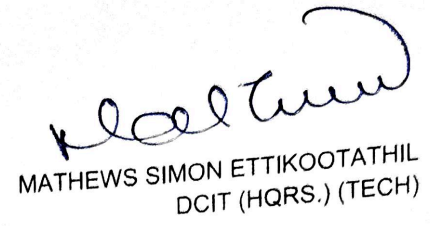 MATHEWS SIMON ETTIKOOTATHIL
DCIT (HQRS.) (TECH)